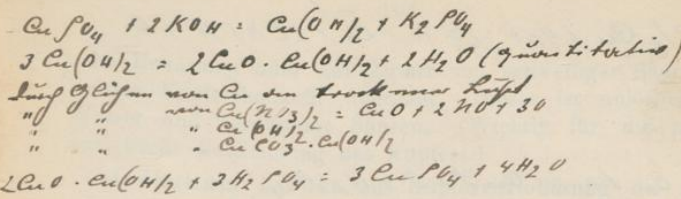 Cu SO4 + 2 KOH = Cu(OH)2 + K2 SO4
3 Cu(OH)2 = 2 CuO . Cu(OH)2 + 2 H2O (quantitativ)
Durch Glühen von Cu an trockener Luft
" " von Cu(NO3)2 = CuO + 2 NO + 3O
" " " Cu(OH)2
" " " Cu CO3 . Cu(OH)2
2 CuO . Cu(OH)2 + 3 H2 SO4 = 3 Cu SO4 + 4 H2O